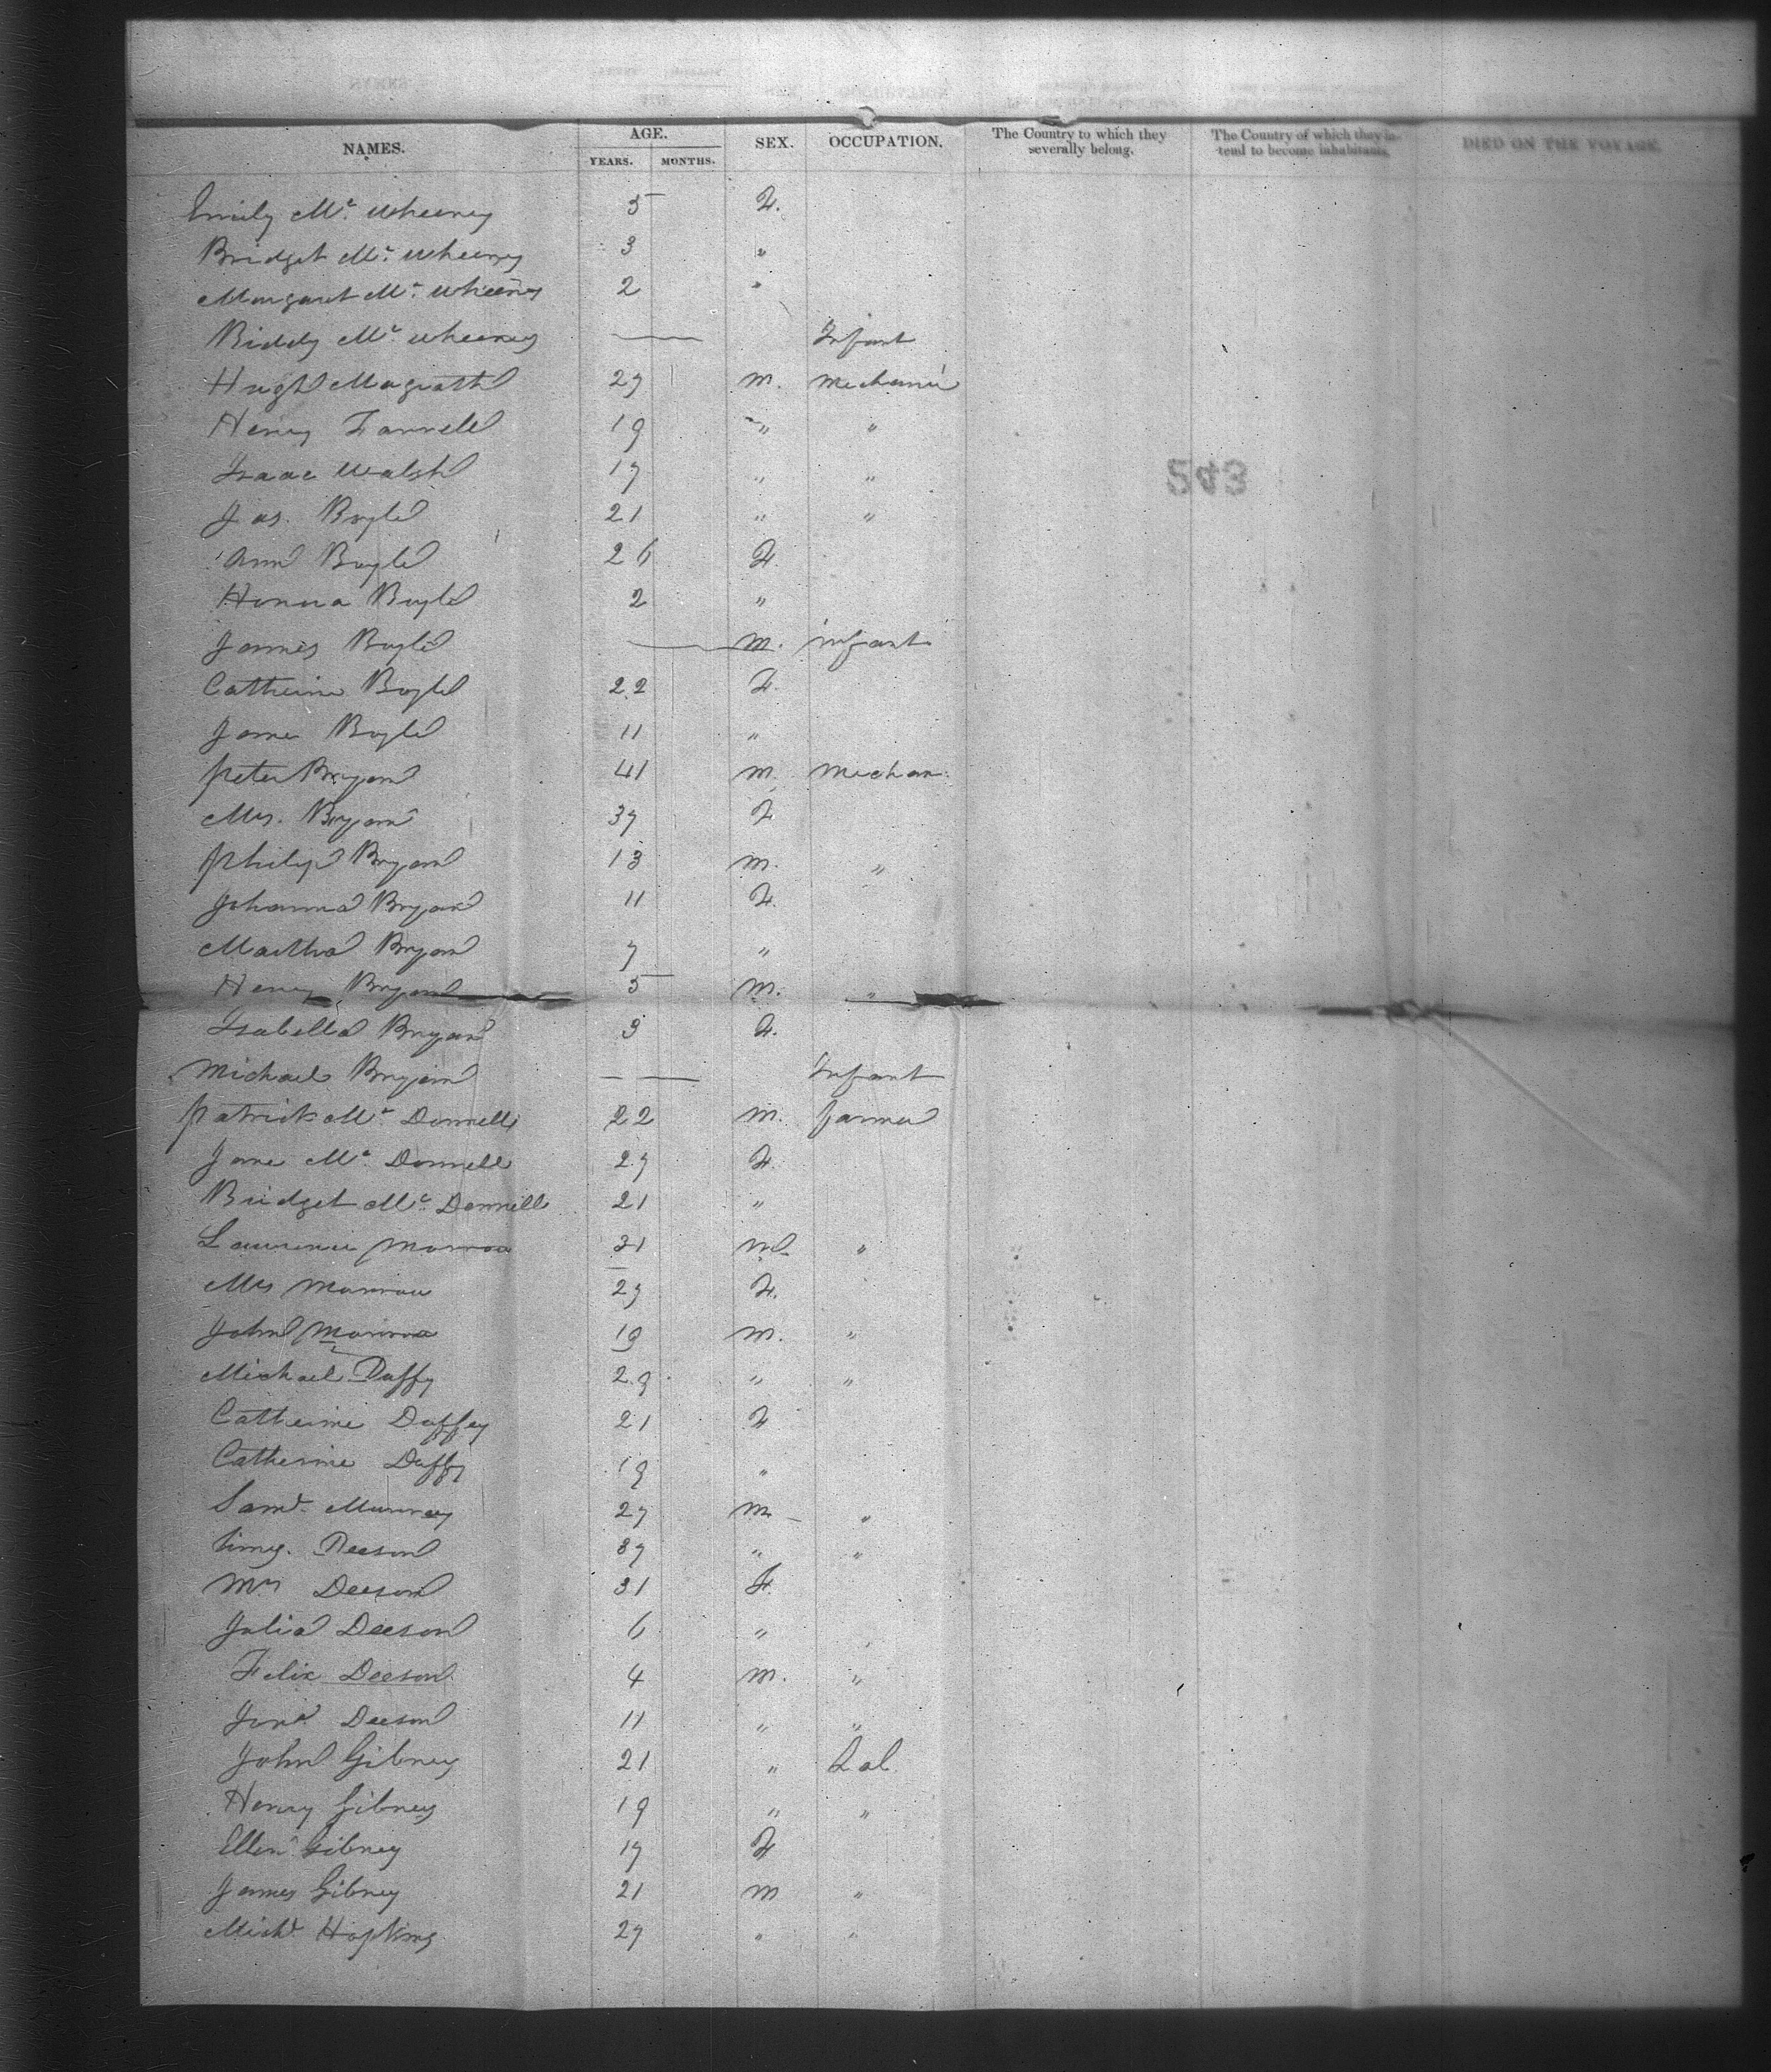 NAMES. AGE. SEX. OCCUPATION. The Country to which they severally belong. The Country of which they intend to become inhabitants. DIED ON THE VOYAGE.
YEARS. MONTHS.
Emily Mc. Wheeney 5 F.
Bridget Mc. Wheeney 3 "
Margaret Mc. Wheeney 2 "
Biddy Mc. Wheeney — Infant
Hugh Magrath 27 m. Mechanic
Henry Farrell 19 " "
Isaac Walsh 17 " "
543
Jas. Boyle 21 " "
Ann Boyle 26 F.
Honora Boyle 2 "
James Boyle — m. infant
Catherine Boyle 22 F.
Jane Boyle 11 "
Peter Bryan 41 m. Mechan.
Mrs. Bryan 37 F
Philip Bryan 13 m. "
Johanna Bryan 11 F.
Martha Bryan 7 "
Henry Bryan 5 m. "
Isabella Bryan 3 F.
Michael Bryan — — Infant
Patrick Mc. Donnell 22 m. farmer
Jane Mc. Donnell 27 F.
Bridget Mc. Donnell 21 "
Laurence 31 "
Mrs 27 F.
John 19 m. "
Michael Duffy 29 " "
Catherine Duffey 21 F
Catherine Duffy 19 "
Saml. Murray 27 m "
Timy. Deeson 37 " "
Mrs Deeson 31 F.
Julia Deeson 6 "
Felix Deeson 4 m. "
Deeson 11 " "
John Gibney 21 " Lab
Henry Gibney 19 " "
Ellen Gibney 17 F
James Gibney 21 m "
Michl. Hopkins 27 " "